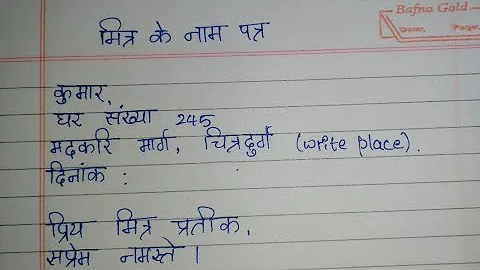 Bafna Gold
Date: Page:
मित्र के नाम पत्र
कुमार,
घर संख्या 245
मदकरि मार्ग, चित्रदुर्ग (write place).
दिनांक :
प्रिय मित्र प्रतीक,
सप्रेम नमस्ते ।